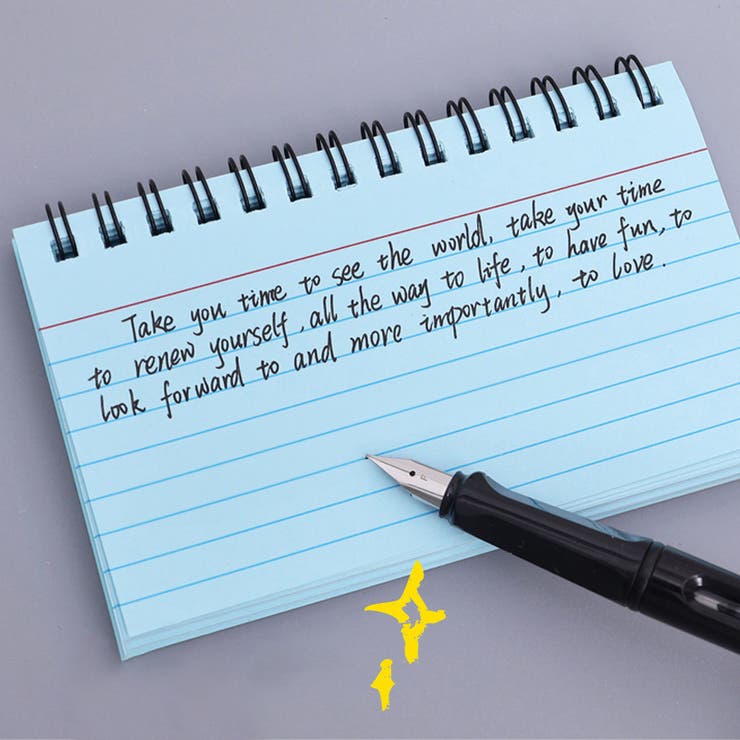 Take you time to see the world, take your time
to renew yourself, all the way to life, to have fun, to
look forward to and more importantly, to love.
F